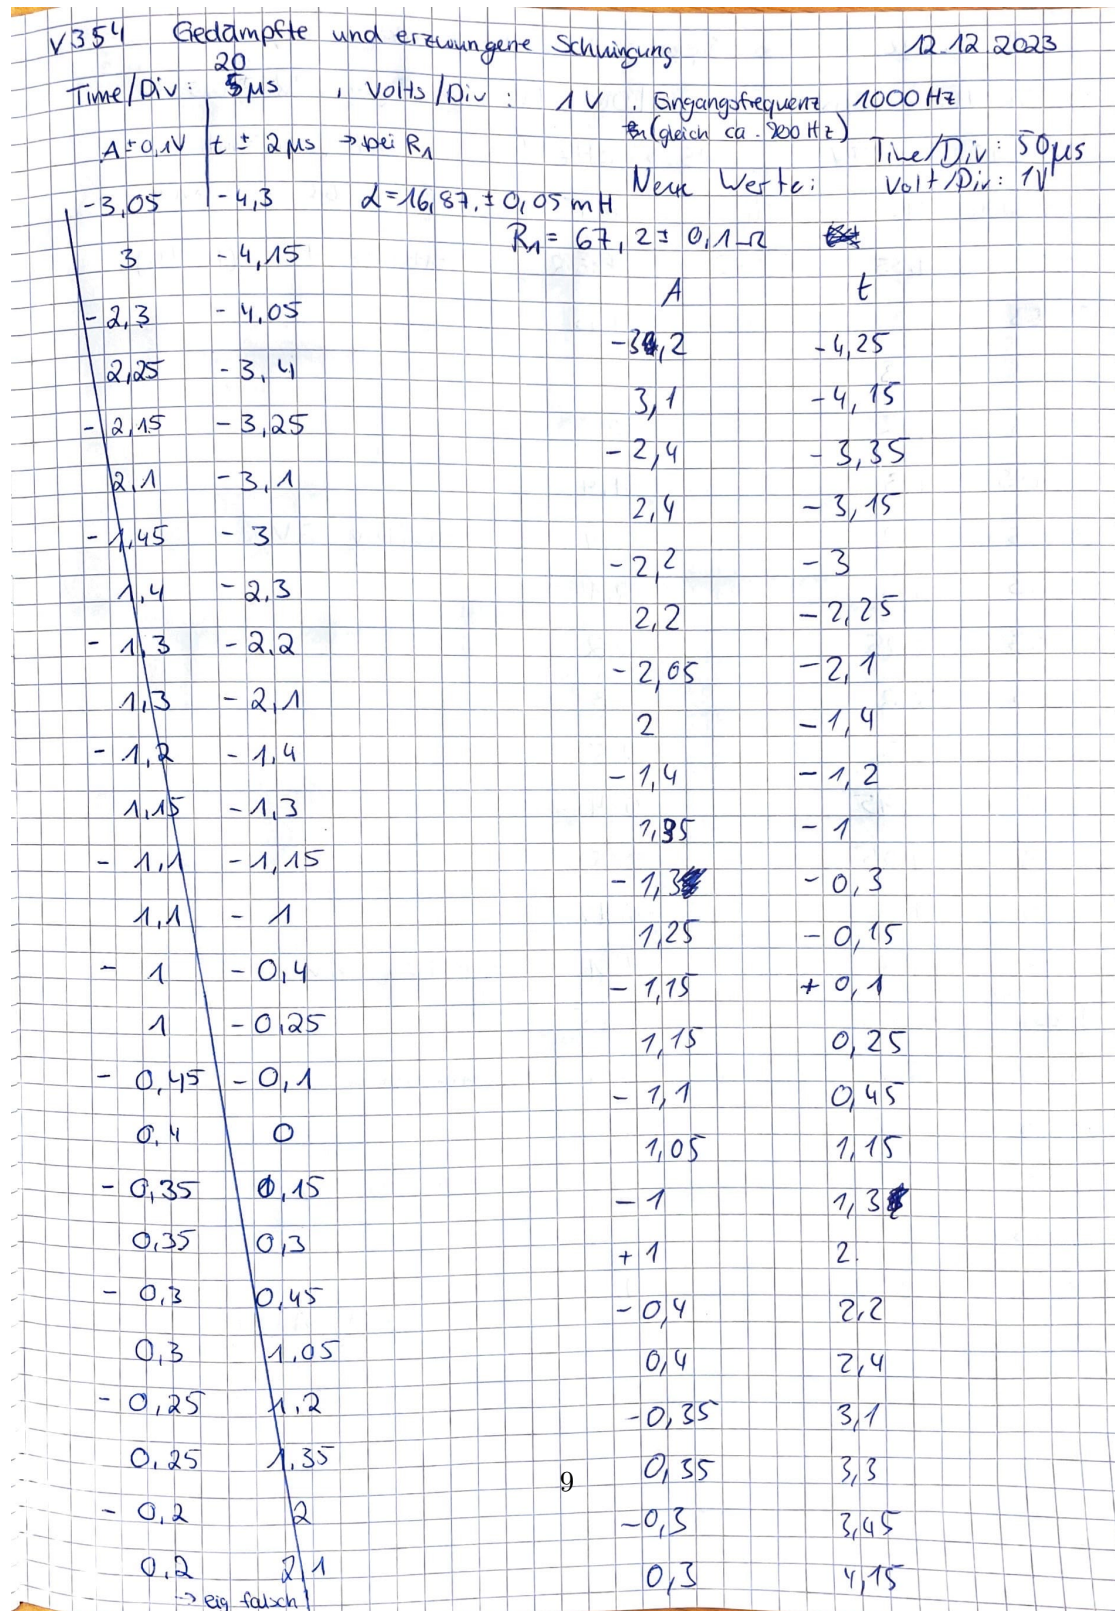 V354 Gedämpfte und erzwungene Schwingung 12.12.2023
20
Time/Div: 5µs , Volts/Div: 1V , Eingangsfrequenz 1000Hz
(gleich ca. 900Hz)
A±0,1V t ± 2µs → bei R1
Time/Div: 50µs
Neue Werte: Volt/Div: 1V
-3,05 -4,3 L=16,87 ± 0,05mH
R1= 67,2± 0,1Ω
3 -4,15
-2,3 -4,05
2,25 -3,4
-2,15 -3,25
2,1 -3,1
-1,45 -3
1,4 -2,3
-1,3 -2,2
1,3 -2,1
-1,2 -1,4
1,15 -1,3
-1,1 -1,15
1,1 -1
-1 -0,4
1 -0,25
-0,45 -0,1
0,4 0
-0,35 0,15
0,35 0,3
-0,3 0,45
0,3 1,05
-0,25 1,2
0,25 1,35
-0,2 2
0,2 2,1
→ eig falsch!
A t
-3,2 -4,25
3,1 -4,15
-2,4 -3,35
2,4 -3,15
-2,2 -3
2,2 -2,25
-2,05 -2,1
2 -1,4
-1,4 -1,2
1,35 -1
-1,3 -0,3
1,25 -0,15
-1,15 +0,1
1,15 0,25
-1,1 0,45
1,05 1,15
-1 1,3
+1 2
-0,4 2,2
0,4 2,4
-0,35 3,1
0,35 3,3
-0,3 3,45
0,3 4,15
9